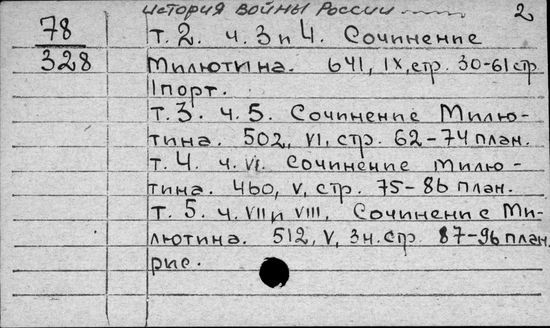 история войны России 2
78 т. 2. ч. 3 и 4. Сочинение
328 Милютина. 641, IX, стр. 30-61 стр.
1 порт.
т. 3. ч. 5. Сочинение Милю-
тина. 502, VI, стр. 62-74 план.
т. 4. ч. VI. Сочинение Милю-
тина. 460, V, стр. 75-86 план.
т. 5. ч. VII и VIII. Сочинение Ми-
лютина. 512, V, 3н. стр. 87-96 план.
рис.